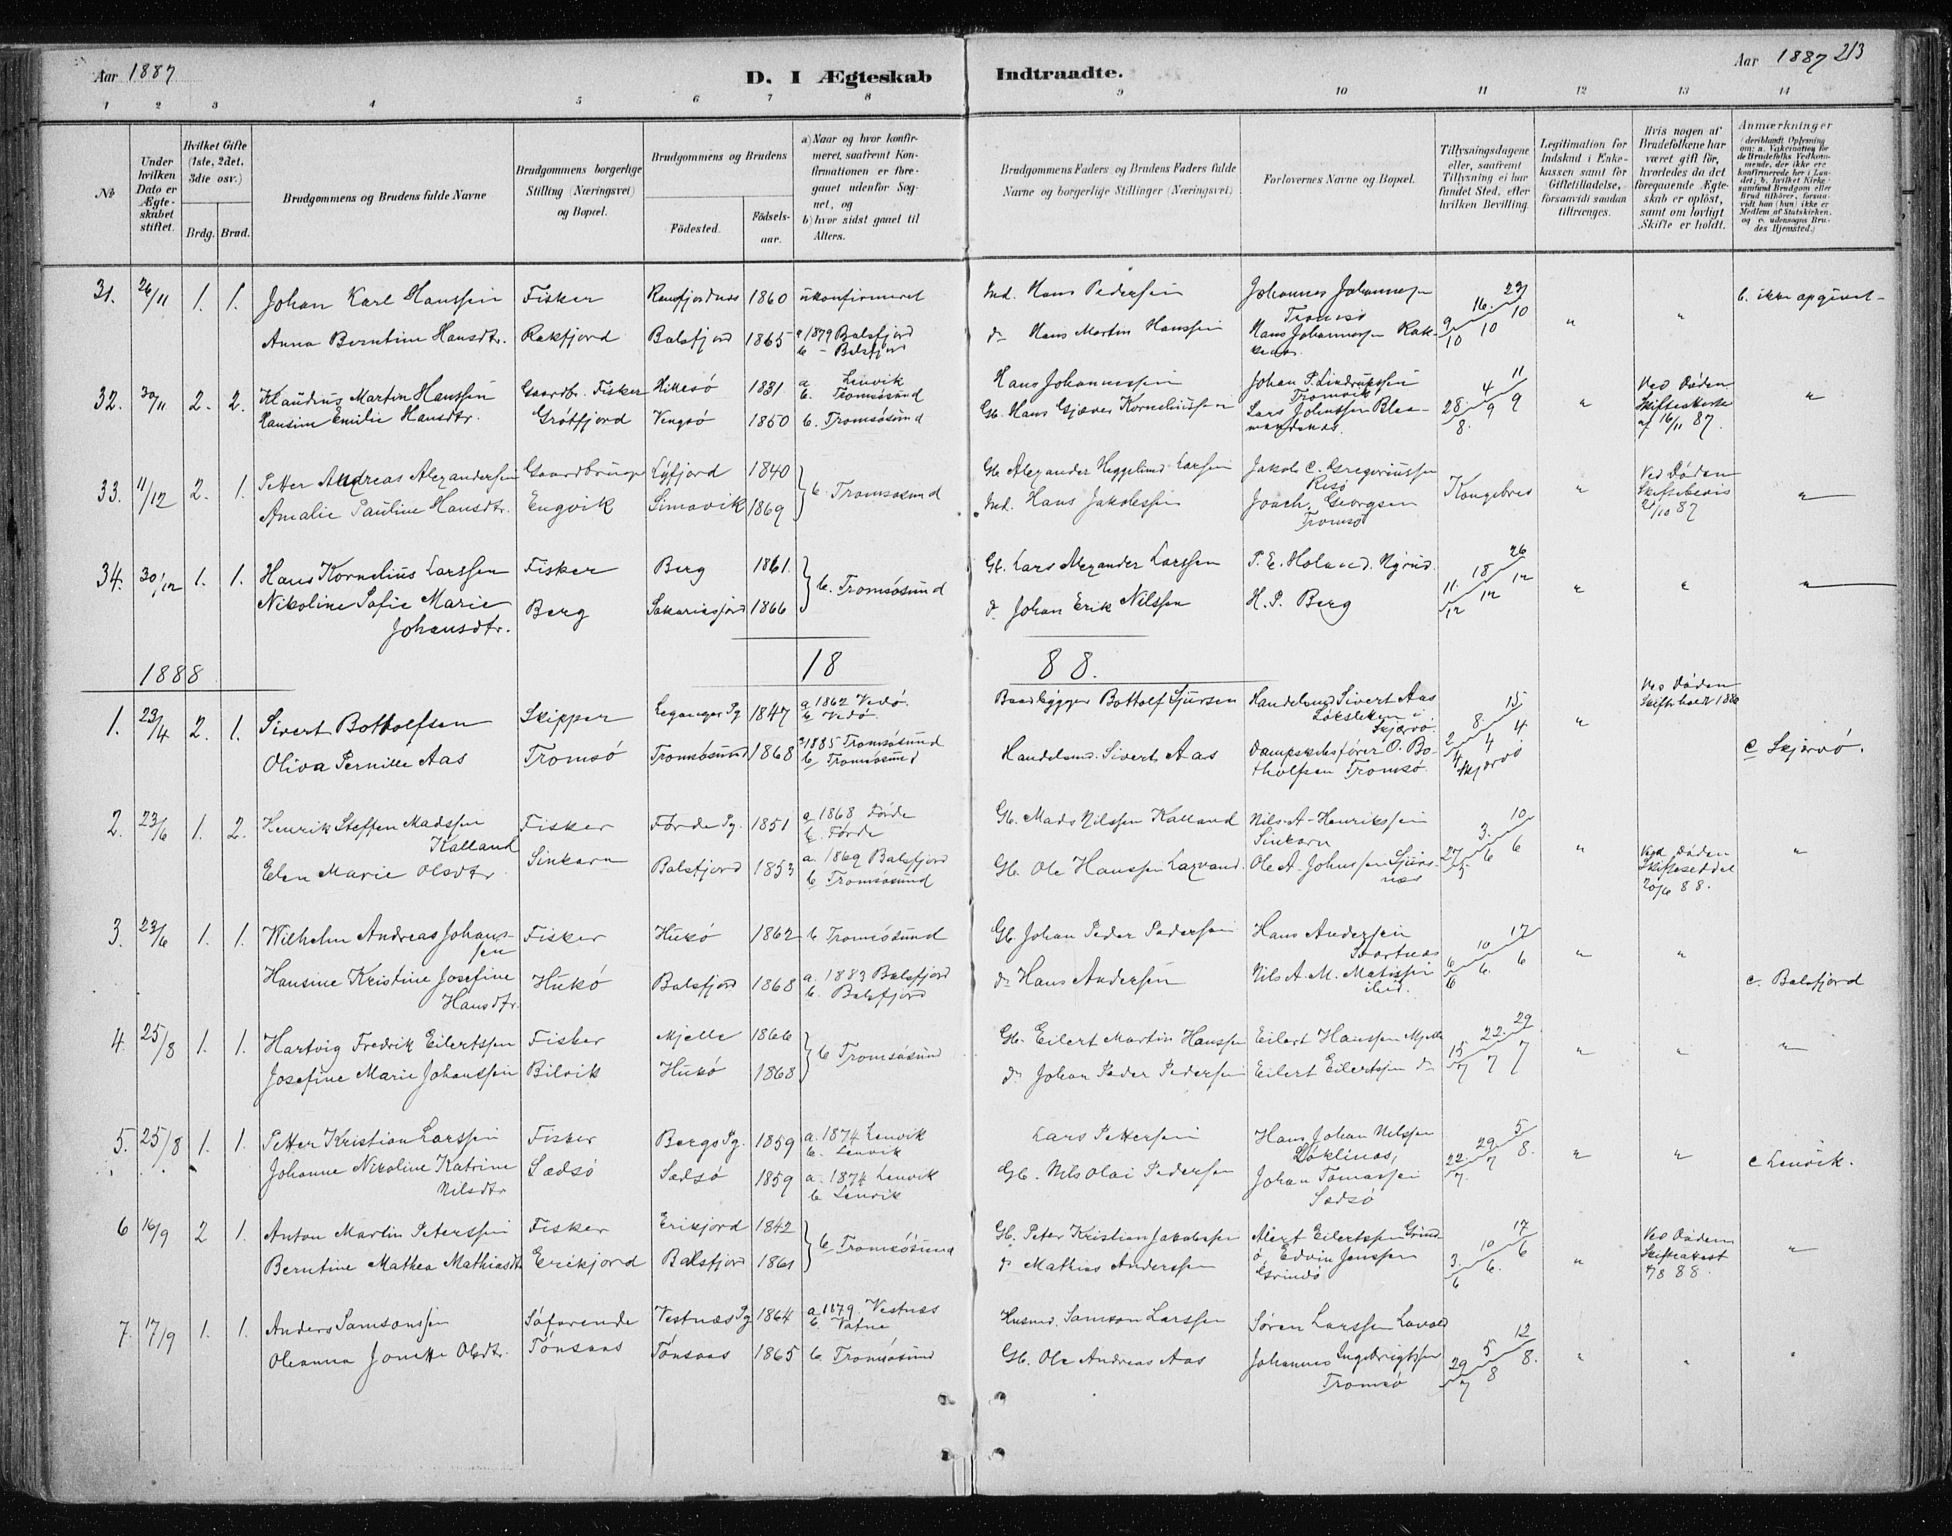 Aar 1887
D. I Ægteskab Indtraadte.
Aar 1887 213
1 2 3 4 5 6 7 8 9 10 11 12 13 14
№
Under hvilken Dato er Ægteskabet stiftet.
Hvilket Gifte (1ste, 2det, 3die osv.)
Brdg. Brud.
Brudgommens og Brudens fulde Navne
Brudgommens borgerlige Stilling (Næringsvei) og Bopæl.
Brudgommens og Brudens
Fødested. Fødselsaar.
a) Naar og hvor konfirmeret, saafremt Konfirmationen er foregaaet udenfor Sognet, og
b) hvor sidst gaaet til Alters.
Brudgommens Faders og Brudens Faders fulde Navne og borgerlige Stillinger (Næringsvei)
Forlovernes Navne og Bopæl.
Tillysningsdagene eller, saafremt Tillysning ei har fundet Sted, efter hvilken Bevilling.
Legitimation for Indskud i Enkekassen samt for Giftetilladelse, forsaavidt saadan tiltrænges.
Hvis nogen af Brudefolkene har været gift før, hvorledes da det foregaaende Ægteskab er opløst, samt om lovligt Skifte er holdt.
Anmærkninger
31. 26/11 1. 1. Johan Karl Hanssen Fisker 1860 ukonfirmeret Ind. Hans Pedersen Johannes Johannesen Tromsø 9/10 16/10 23/10 " " b. ikke opgivet
Anna Berntine Hansdtr. Rakfjord Balsfjord 1865 a 1879 Balsfjord b - Balsfjord do Hans Martin Hanssen Hans Johannesen
32. 30/11 2. 2. Klaudius Martin Hanssen Gaardbr. Fisker Hillesø 1831 a Lenvik b. Tromsøsund Hans Johannessen Tromvik 28/8 4/9 11/9 " Ved Døden Skifteakest af 16/11 87. "
Hansine Emilie Hansdtr. Grøtfjord Vengsø 1850 b. Tromsøsund Gb. Hans Gjæver Korneliussen Lars Johnssen
33. 11/12 2. 1. Petter Andreas Alexandersen Gaardbruger Lyfjord 1840 b. Tromsøsund Gb. Alexander Heggelund Larssen Jakob C. Gregoriussen Risø Kongebrev " Ved Døden Skiftebevis 2/10 87 "
Amalie Pauline Hansdtr. Engvik Simavik 1869 Ind. Hans Jakobssen Joach. Georgsen Tromsø
34. 30/12 1. 1. Hans Kornelius Larssen Fisker Berg 1861. b. Tromsøsund Gb. Lars Alexander Larssen P. E. Holand. 11/12 18/12 26/12 " " "
Nikoline Sofie Marie Johansdtr. Berg Sakariasfjord 1866 do Johan Erik Nilssen H. P. Berg
1888 18 88.
1. 23/4 2. 1. Sivert Botholfsen Skipper Leganger Pg 1847 a 1862 Vedø. b. Vedø. Baadbygger Bottolf Sjursen Handelsmd Sivert Aas Løksletten i Skjervø 2/4 8/4 15/4 Skjervø " Ved Døden Skifte holdt 1886
Oliva Pernille Aas Tromsø Tromsøsund 1868 a 1885 Tromsøsund b Tromsøsund Handelsmd. Sivert Aas Dampskibsfører O. Botholfsen Tromsø. c Skjervø.
2. 23/6 1. 2. Henrik Steffen Madssen Kalland Fisker Førde Pg. 1851 a 1868 Førde b. Førde Gb. Mads Nilssen Kalland Nils A. Henrikssen Sinkarn 27/5 3/6 10/6 " Ved Døden Skifteseddel 20/6 88. "
Elen Marie Olsdtr. Sinkarn Balsfjord 1853 a. 1869 Balsfjord b Tromsøsund Gb. Ole Hanssen Ole A. Johnssen
3. 23/6 1. 1. Wilhelm Andreas Johanssen Fisker Hukø 1862 b Tromsøsund Gb. Johan Peder Pedersen Hans Andersen Svartnas 6/6 10/6 17/6 " "
Hansine Kristine Josefine Hansdtr. Hukø Balsfjord 1868 a. 1883 Balsfjord b. Balsfjord do Hans Andersen Nils A. M. Matissen ibid. c. Balsfjord
4. 25/8 1. 1. Hartvig Fredrik Eilertssen Fisker Mjelle 1866 b Tromsøsund Gb. Eilert Martin Hanssen Eilert Hanssen Mjelle 15/7 22/7 29/7 " " "
Josefine Marie Johanssen Bilvik Hukø 1868 do Johan Peder Pedersen Eilert Eilertssen do
5. 25/8 1. 1. Petter Kristian Larssen Fisker Bergs Pg. 1859 a. 1874 Lenvik b. Lenvik Lars Pettersen Hans Johan Nilssen 22/7 29/7 5/8. " " c Lenvik.
Johanne Nikoline Katrine Nilsdtr Sædsø Sædsø 1859 a. 1874 Lenvik b Lenvik Gb. Nils Olai Pedersen Johan Tomassen Sædsø
6 16/9 2 1. Anton Martin Peterssen Fisker Erikjord 1842 b Tromsøsund Gb. Peter Kristian Jakobssen Alert Eilertssen Grindø 3/6 10/6. 17/6 " Ved Døden Skifteakest 7/8 88. "
Berntine Mathea Mathiasdtr Erikjord Balsfjord 1861 do Mathias Anderssen Edvin Jenssen Grindø
7. 17/9 1. 1. Anders Samsonssen Søfarende Vestnæs Pg 1864 a. 1879 Vestnæs b. Vatne Husmd. Samson Larssen Søren Larssen 29/7 5/8 12/8. " " "
Oleanna Jonette Olsdtr. Tønsaas Tønsaas 1865 b. Tromsøsund Gb. Ole Andreas Aas Johannes Ingebrigtssen Tromsø